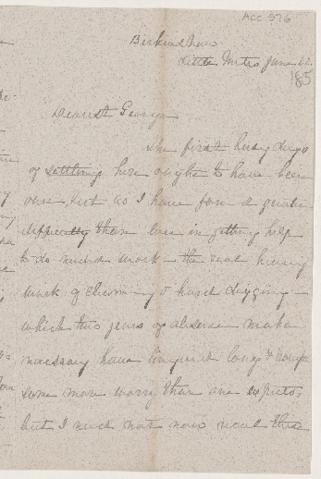 ACC 576
Birkenshaw
Little Metis June
185
Dearest George
The first busy days
of settling here ought to have been
over, but as I have found a greater
difficulty than ever in getting help
to do much work – the real heavy
work of cleaning & hard digging –
which two years of absence make
necessary have lingered long &
some more worry than one expects
but I must not now